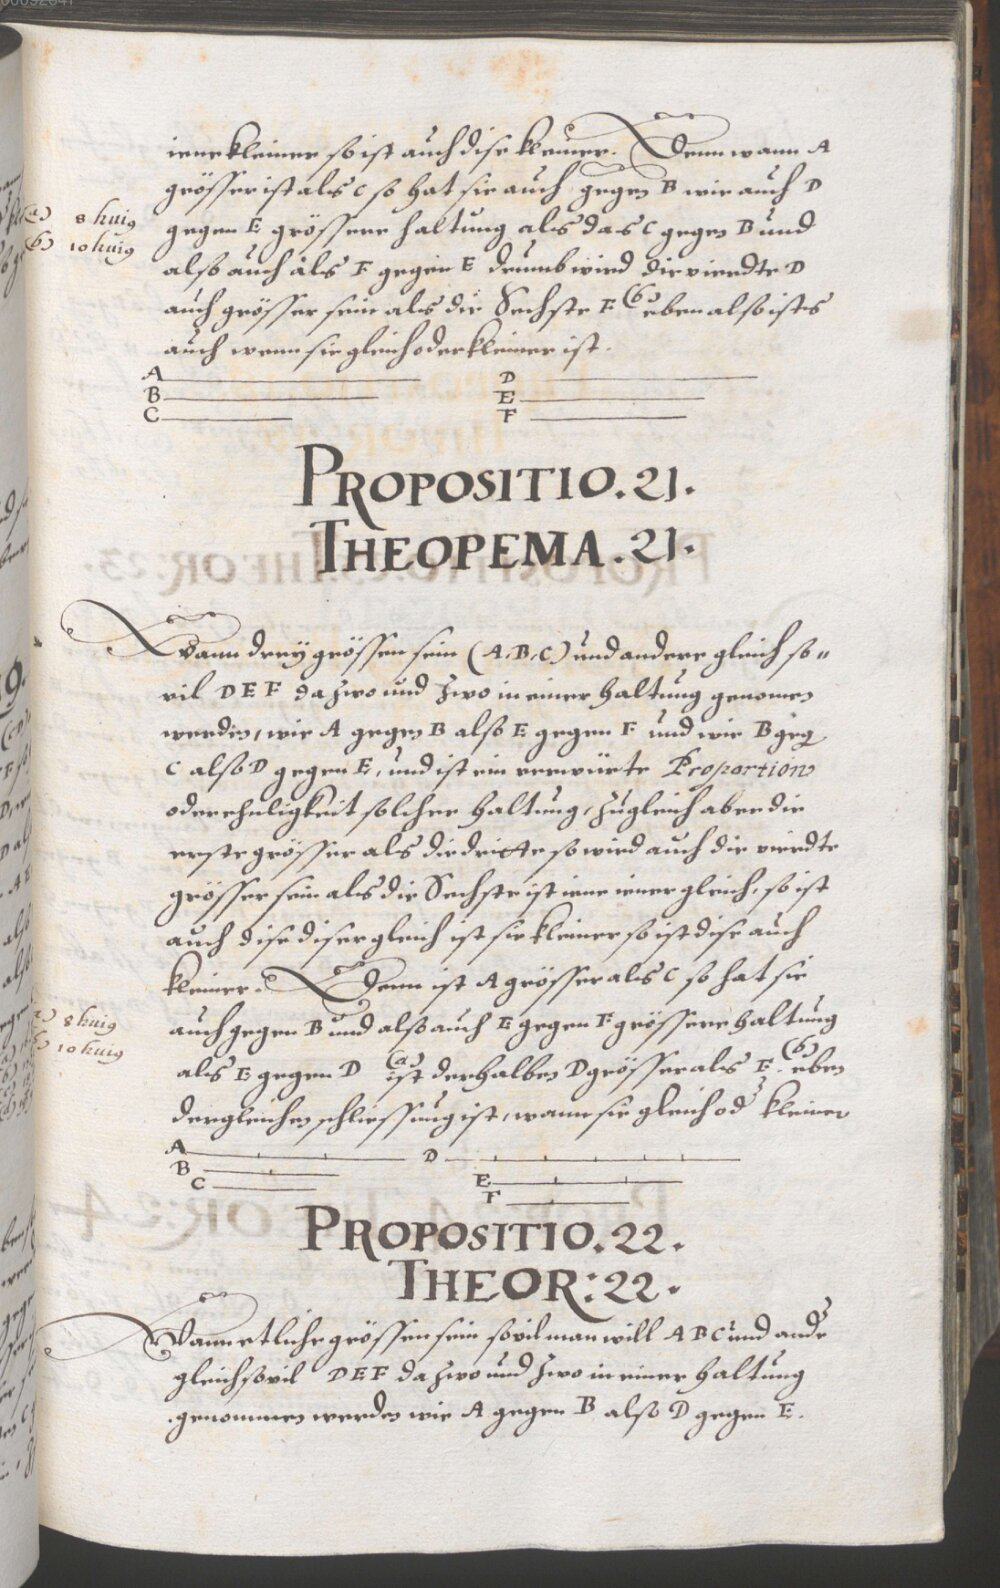 iene kleiner so ist auch dise kleiner. Denn wann A
grösser ist als C so hat sie auch gegen B wie auch D
(a) 8 huiꝯ
gegen E grössere haltung als das C gegen B und
(b) 10 huiꝯ
also auch als F gegen E drumb wird die vierdte D
auch grösser sein als die Sechste F (b) eben also ists
auch wenn sie gleich oder kleiner ist.
A D
B E
C F
PROPOSITIO. 21.
THEOPEMA. 21.
Wann dreÿ grössen sein (A. B. C.) und andere gleich so„
vil D E F da zwo und zwo in einer haltung genomen
werden, wie A gegen B also E gegen F und wie B gegē
C also D gegen E, und ist ein verwürte Proportion
oder ehnligkeit solcher haltung, zugleich aber die
erste grösser als die dritte so wird auch die vierdte
grösser sein als die Sechste ist iene iener gleich, so ist
auch dise diser gleich ist sie kleiner so ist dise auch
kleiner. Denn ist A grösser als C so hat sie
(a) 8 huiꝯ
auch gegen B und also auch E gegen F grössere haltung
(b) 10 huiꝯ
als E gegen D (a) ist derhalben D grösser als F. (b) eben
dergleichen schliessung ist, wann sie gleich od' kleiner
A D
B
C E
F
PROPOSITIO. 22.
THEOR: 22.
Wann etliche grössen sein sovil man will A B C und and're
gleich sovil D E F da zwo und zwo in einer haltung
genommen werden wie A gegen B also D gegen E.